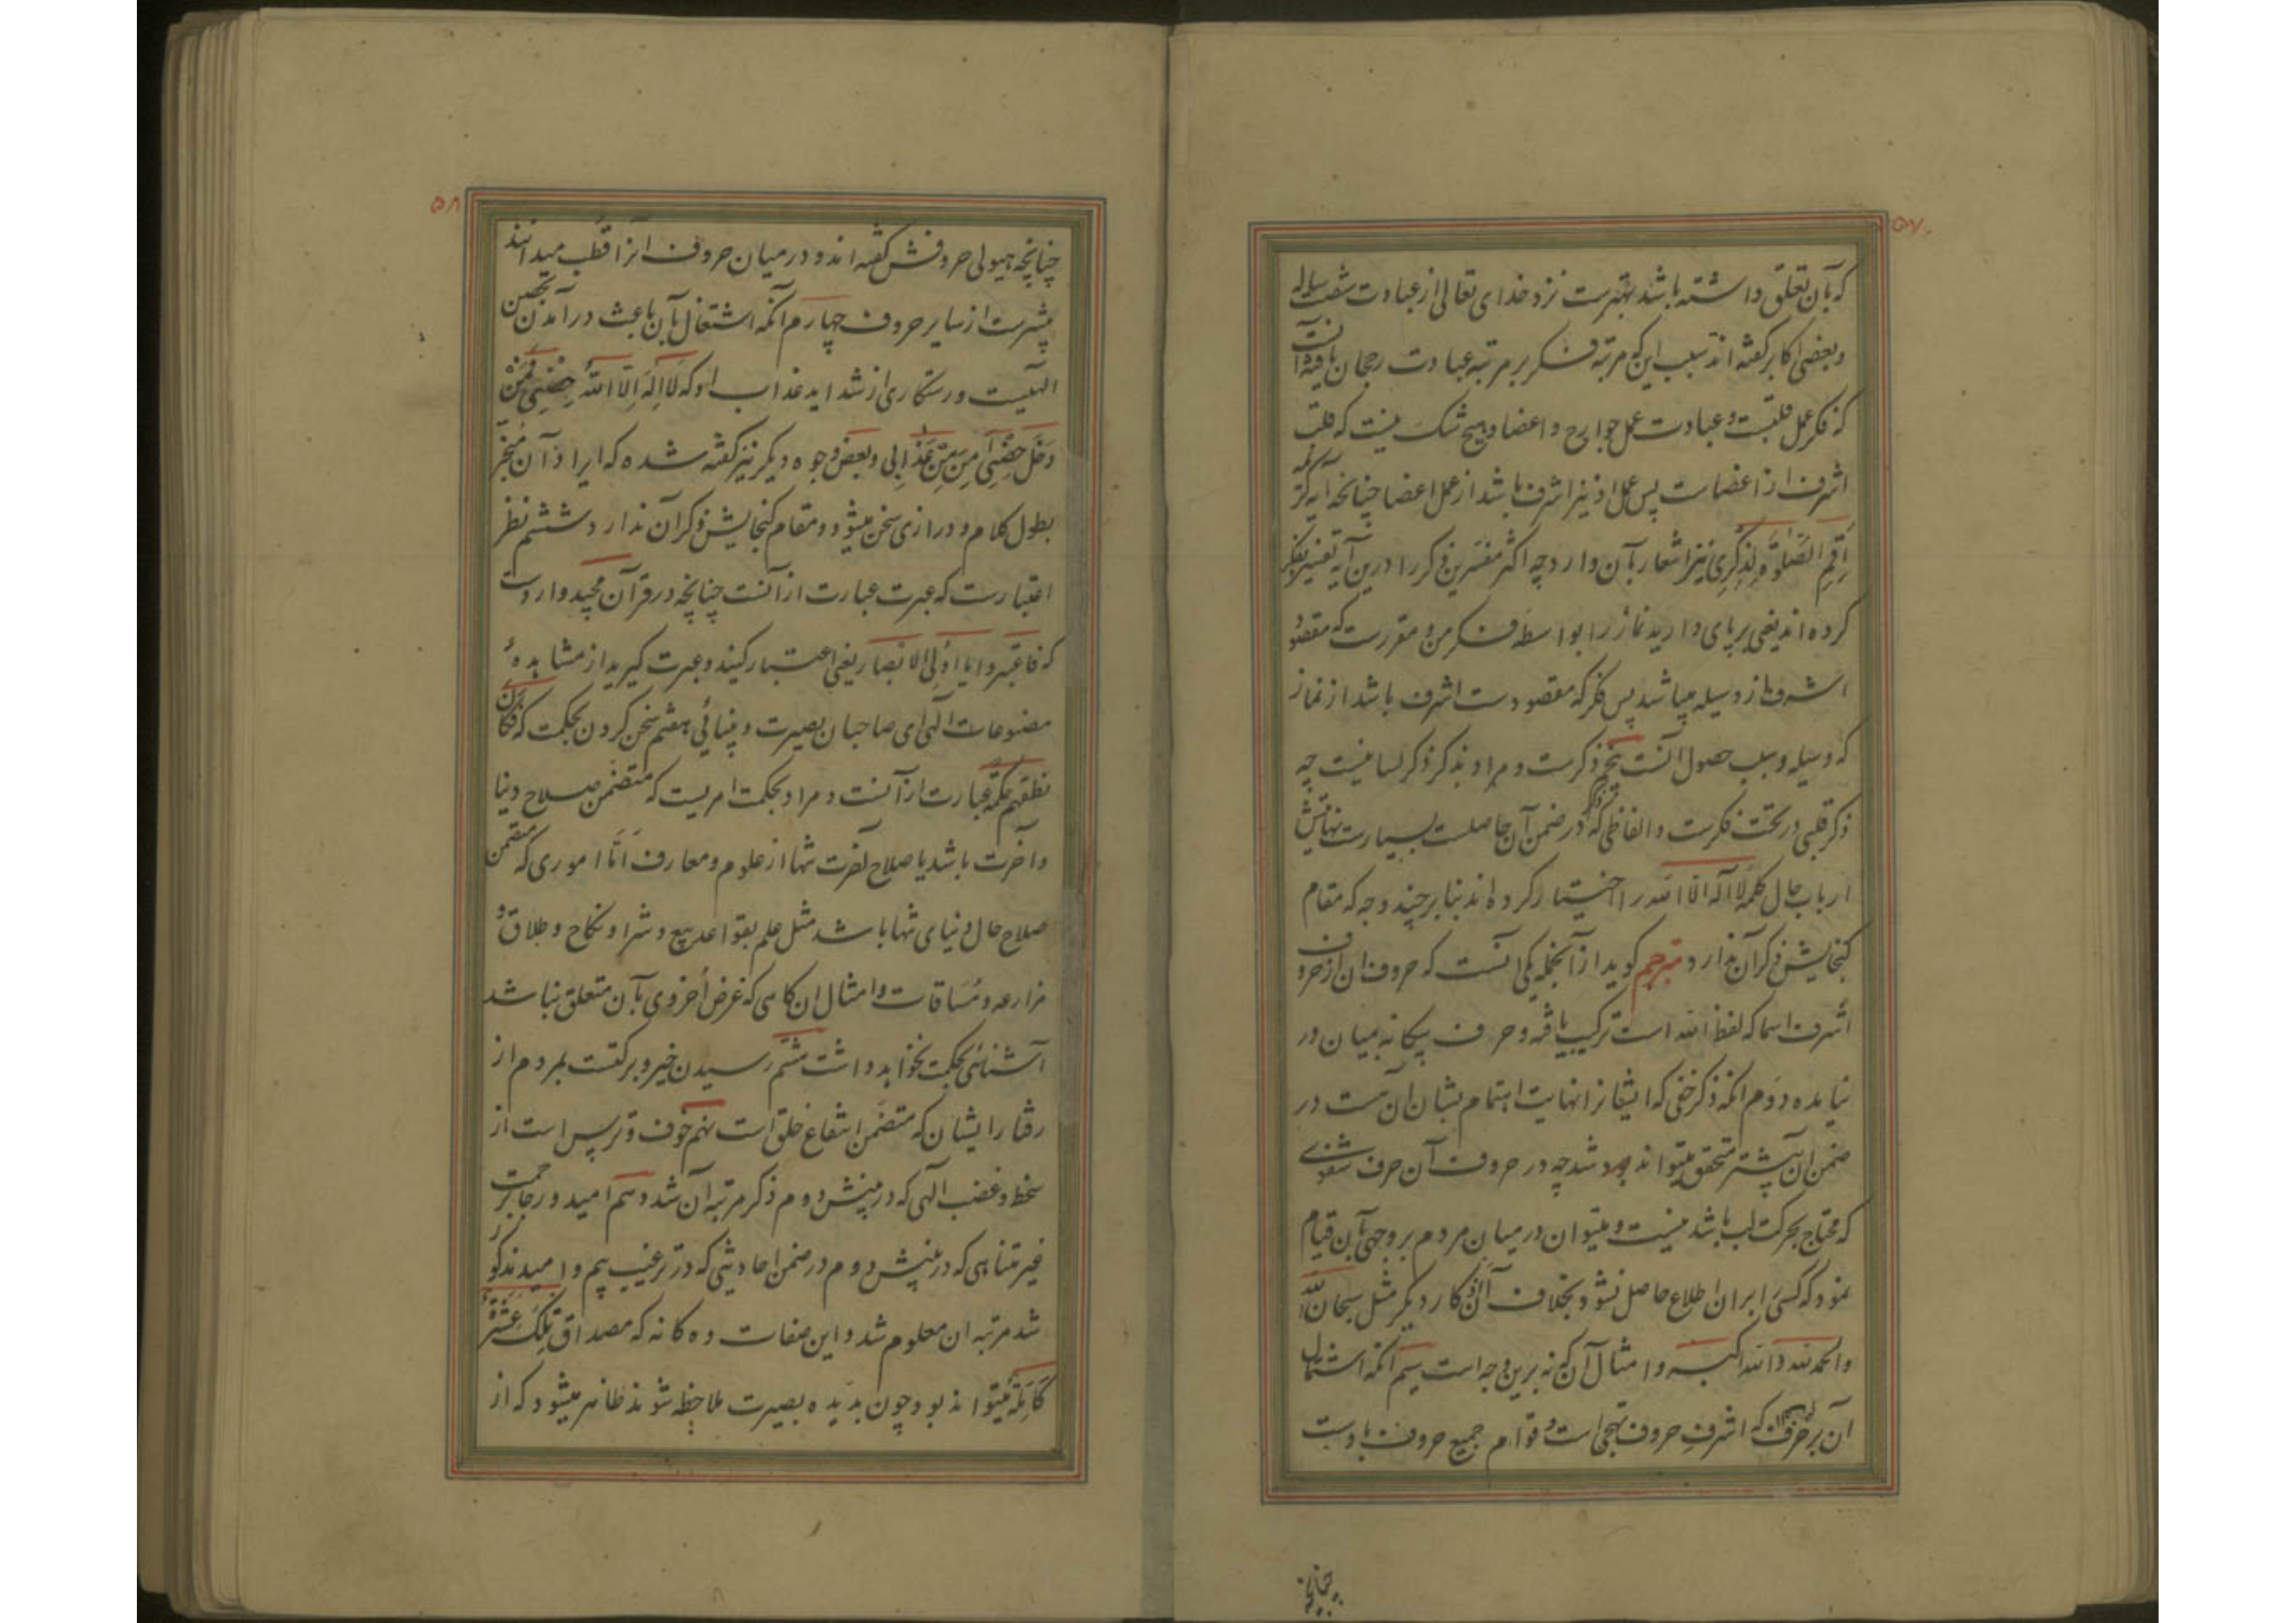 ۵۷
که بآن تعلق داشته باشد بهترست نزد خدای تعالی از عبادت شصت ساله
و بعضی اکابر گفته اند بسبب این که مرتبه فکر بر مرتبه عبادت رجحان یافته انست
که فکر عمل قلبست و عبادت عمل جوارح و اعضا و هیچ شک نیست که قلب
اشرف از اعضاست پس عمل او نیز اشرف باشد از عمل اعضا چنانچه آیه کریمه
اَقِمِ الصَّلوٰةَ لِذِکْرِی نیز اشعار بآن دارد چه اکثر مفسرین ذکر را درین آیه تفسیر بفکر
کرده اند یعنی برپای دارید نماز را بواسطه فکر من و مقررست که مقصود
اشرف از وسیله میباشد پس فکر که مقصودست اشرف باشد از نماز
که وسیله و سبب حصول آنست پنجم ذکرست و مراد بذکر ذکر لسانیست چه
ذکر قلبی در تحت فکرست و الفاظی که ذکر در ضمن آن حاصلست بسیارست نهایتش
ارباب حال کلمه لا اله الا الله را اختیار کرده اند بنا بر چند وجه که مقام
گنجایش ذکر آن ندارد مترجم گوید از آنجمله یکی آنست که حروف ان از حروف
اشرف اسما که لفظ الله است ترکیب یافته و حرف بیگانه بمیان در
نیامده دوم انکه ذکر خفی که ایشانرا نهایت اهتمام بشان ان هست در
ضمن ان بیشتر متحقق میتواند شد چه در حروف آن حرف شفوی
که محتاج بحرکت لب باشد نیست و میتوان در میان مردم بر وجهی بآن قیام
نمود که کسی را بران اطلاع حاصل نشود بخلاف آن اذکار دیگر مثل سبحان الله
والحمد لله و الله اکبر و امثال آن که نه برین وجه است سیم انکه اشتمال
آن بر حرف که اشرف حروف تهجی است و قوام جمیع حروف باوست
چنانچه
۵۸
چنانچه هیولی حروفش گفته اند و در میان حروف انرا قطب میدانند
بیشترست از سایر حروف چهارم آنکه اشتغال بآن باعث در آمدن بحصن
الهیست و رستکاری از شداید عذاب او که لَا اِلٰهَ اِلَّا اللّٰهُ حِصْنِی فَمَنْ
دَخَلَ حِصْنِی اَمِنَ مِنْ عَذَابِی و بعض وجوه دیگر نیز گفته شده که ایراد آن منجر
بطول کلام و درازی سخن میشود و مقام گنجایش ذکر آن ندارد ششم نظر
اعتبارست که عبرت عبارت از آنست چنانچه در قرآن مجید واردست
که فاعتبروا یا اولی الابصار یعنی اعتبار کنید و عبرت گیرید از مشاهدهٔ
مصنوعات الهی ای صاحبان بصیرت و بینائی هفتم سخن کردن بحکمت که فَکَانَ
نطقهم حکمة عبارت از آنست و مراد بحکمت امریست که متضمن صلاح دنیا
و آخرت باشد یا صلاح آخرت تنها از علوم و معارف امّا اموری که متضمن
صلاح حال دنیای تنها باشد مثل علم بقواعد بیع و شرا و نکاح و طلاق و
مزارعه و مساقات و امثال ان گاهی که غرض اُخروی بآن متعلق نباشد
آشنائی بحکمت نخواهد داشت هشتم رسیدن خیر و برکتست بمردم از
رفتار ایشان که متضمن انتفاع خلق است نهم خوف و ترس است از
سخط و غضب الهی که در بینش دوم ذکر مرتبه آن شد دهم امید و رجا برحمت
غیر متناهی که در بینش دوم در ضمن احادیثی که در ترغیب بیم و امید مذکور
شد مرتبه ان معلوم شد و این صفات ده گانه که مصداق تِلْكَ عَشَرَةٌ
کَامِلَةٌ میتواند بود چون بدیده بصیرت ملاحظه شوند ظاهر میشود که از